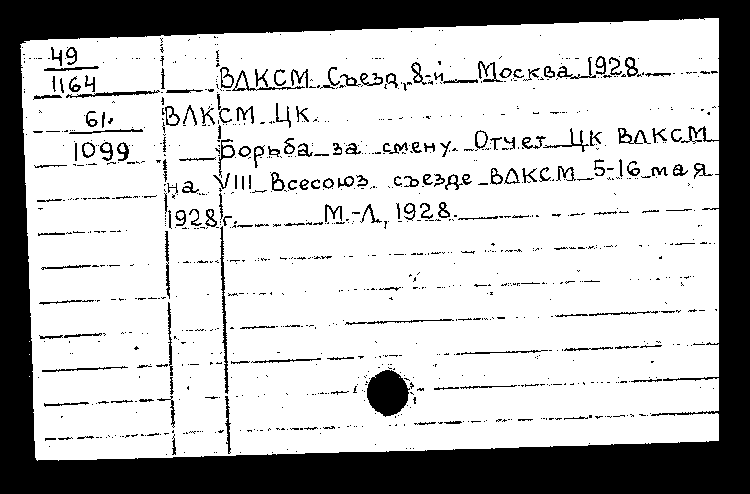 49
1164
ВЛКСМ Съезд, 8-й Москва 1928
61.
1099
ВЛКСМ ЦК
Борьба за смену. Отчет ЦК ВЛКСМ
на VIII Всесоюз. съезде ВЛКСМ 5-16 мая
1928г. М.-Л., 1928.